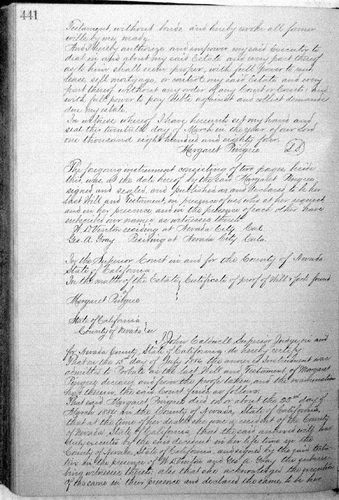 441
Testament, without bonds and hereby revoke all former
wills by me made.
And I hereby authorize and empower my said Executor to
deal in and about my said Estate and every part thereof
as to him shall seem proper, with full power to
lease, sell, mortgage, or my said Estate and every
part thereof without any order of any Court or Courts: and
with full power to pay debts against and collect demands
due my estate.
In witness whereof I have hereunto set my hand and
seal this twentieth day of March in the year of our Lord
one thousand eight hundred and eighty four.
Margaret
The foregoing instrument consisting of two pages beside
this was at the date hereof by the said Margaret
signed and sealed and published as and declared to be her
last Will and Testament, in presence of us who at her request
and in her presence and in the presence of each other have
subscribed our names as witnesses thereto.
residing at Nevada City Cal
Geo. A. Gray Residing at Nevada City Cala.
In the Superior Court in and for the County of Nevada
State of California.
In the matter of the Estate, Certificate of proof of Will &
of
Margaret
State of California
County of Nevada
I, John Caldwell Superior Judge in and
for Nevada County, State of California, do hereby certify
That on the day of 188 the annexed Instrument was
admitted to Probate as the last Will and Testament of Margaret
deceased, and from the proofs taken and the examination
had therein, the said Court finds as follows:
That said Margaret died on or about the day of
188 in the County of Nevada, State of California
that at the time of her death she was a resident of the County
of Nevada, State of California. That the said annexed Will was
duly executed by the said decedent in her life time in the
County of Nevada, State of California, and signed by the said
in the presence of and Geo. A. Gray the
witnesses thereto; also that she acknowledged the execution
of the same in their presence and declared the same to be her